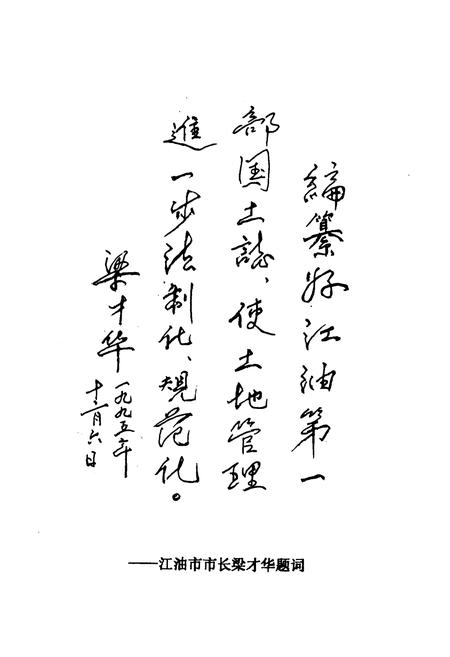 編纂好江油第一
部国土誌、使土地管理
進一步法制化、规范化。
梁才华
一九九五年
十二月六日
——江油市市长梁才华题词